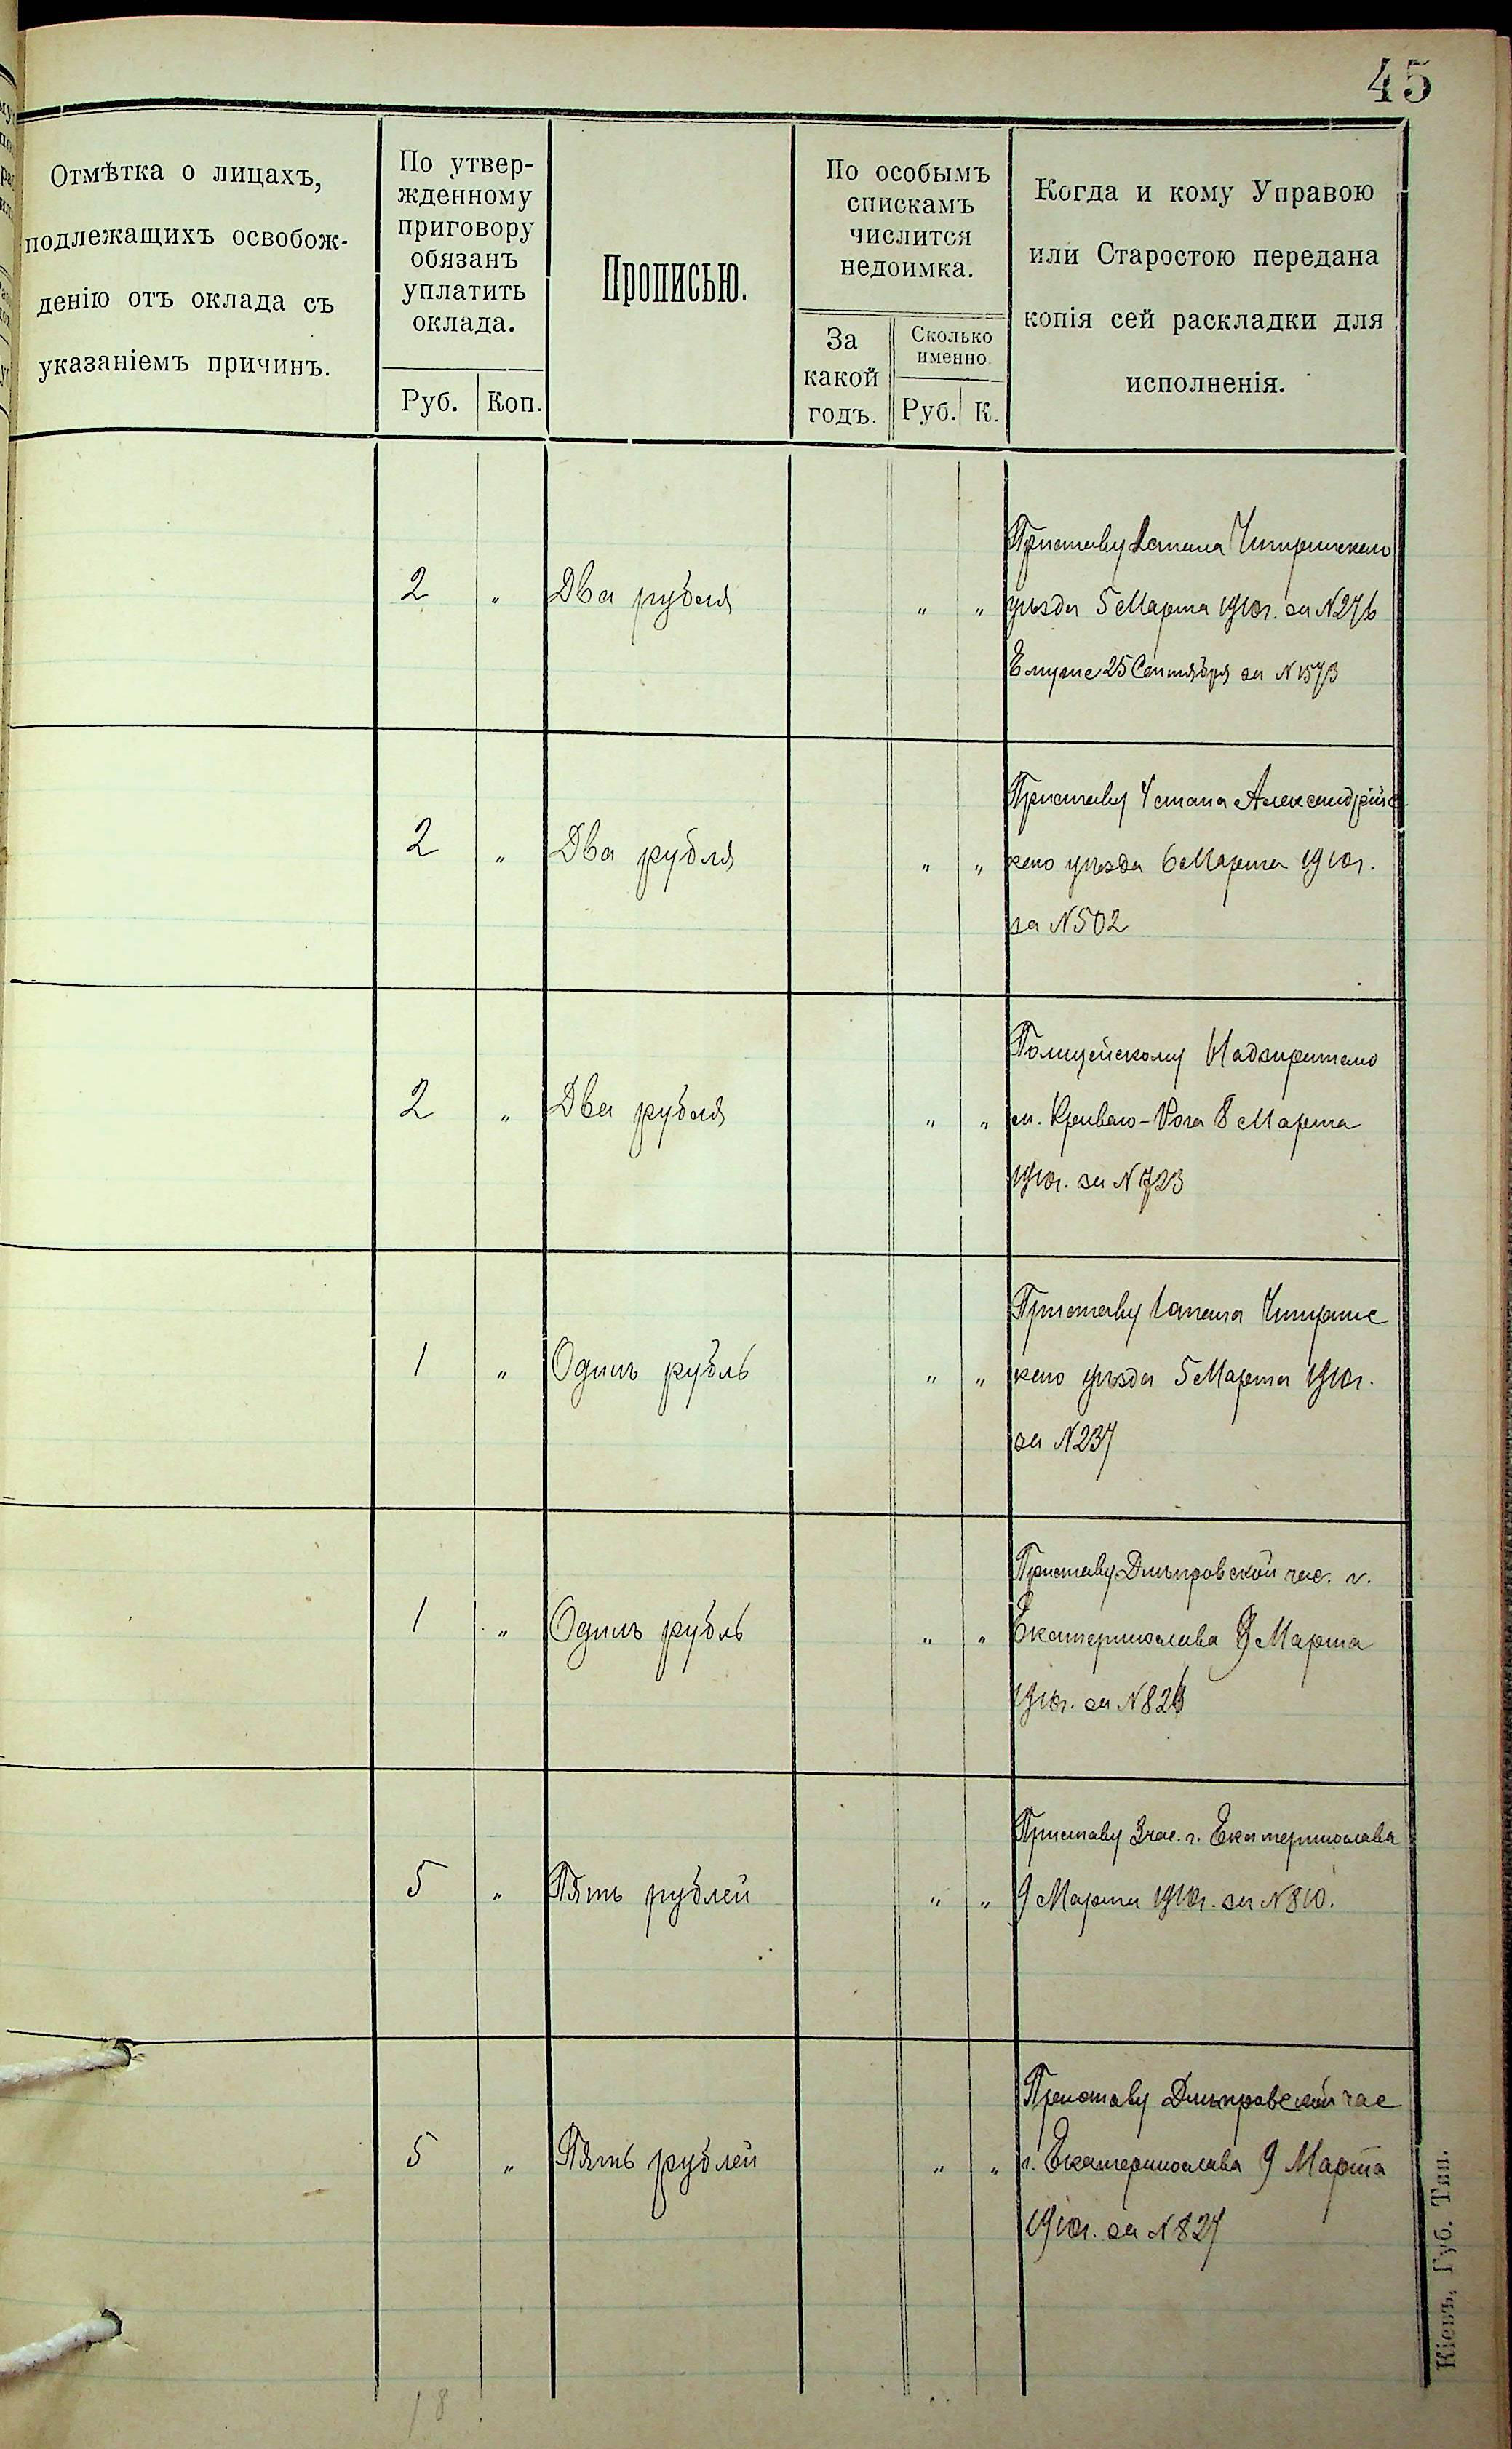 45
Отмѣтка о лицахъ,
подлежащихъ освобож-
денію отъ оклада съ
указаніемъ причинъ.
По утвер-
жденному
приговору
обязанъ
уплатить
оклада.
Руб. Коп.
Прописью.
По особымъ
спискамъ
числится
недоимка.
За
какой
годъ.
Сколько
именно.
Руб. К.
Когда и кому Управою
или Старостою передана
копія сей раскладки для
исполненія.
2 " Два рубля " "
Приставу 1 стана Чигиринскаго
уѣзда 5 Марта 1910г. за N276
25 Сентября за N 1573
2 " Два рубля " "
Приставу 4 стана Александрійс
каго уѣзда 6 Марта 1910г.
за N502
2 " Два рубля " "
Полицейскому Надзирателю
м. Кривого-Рога 8 Марта
1910г. за N 723
1 " Одинъ рубль " "
Приставу 1 стана Чигиринс
каго уѣзда 5 Марта 1910г.
за N237
1 " Одинъ рубль " "
Приставу Днѣпровской час. г.
Екатеринослава 9 Марта
1910г. за
5 " Пять рублей " "
Приставу 3 час. г. Екатеринослава
9 Марта 1910г. за N810.
5 " Пять рублей " "
Приставу Днѣпровской час
г. Екатеринослава 9 Марта
1910г. за N827
18
Кіевъ, Губ. Тип.